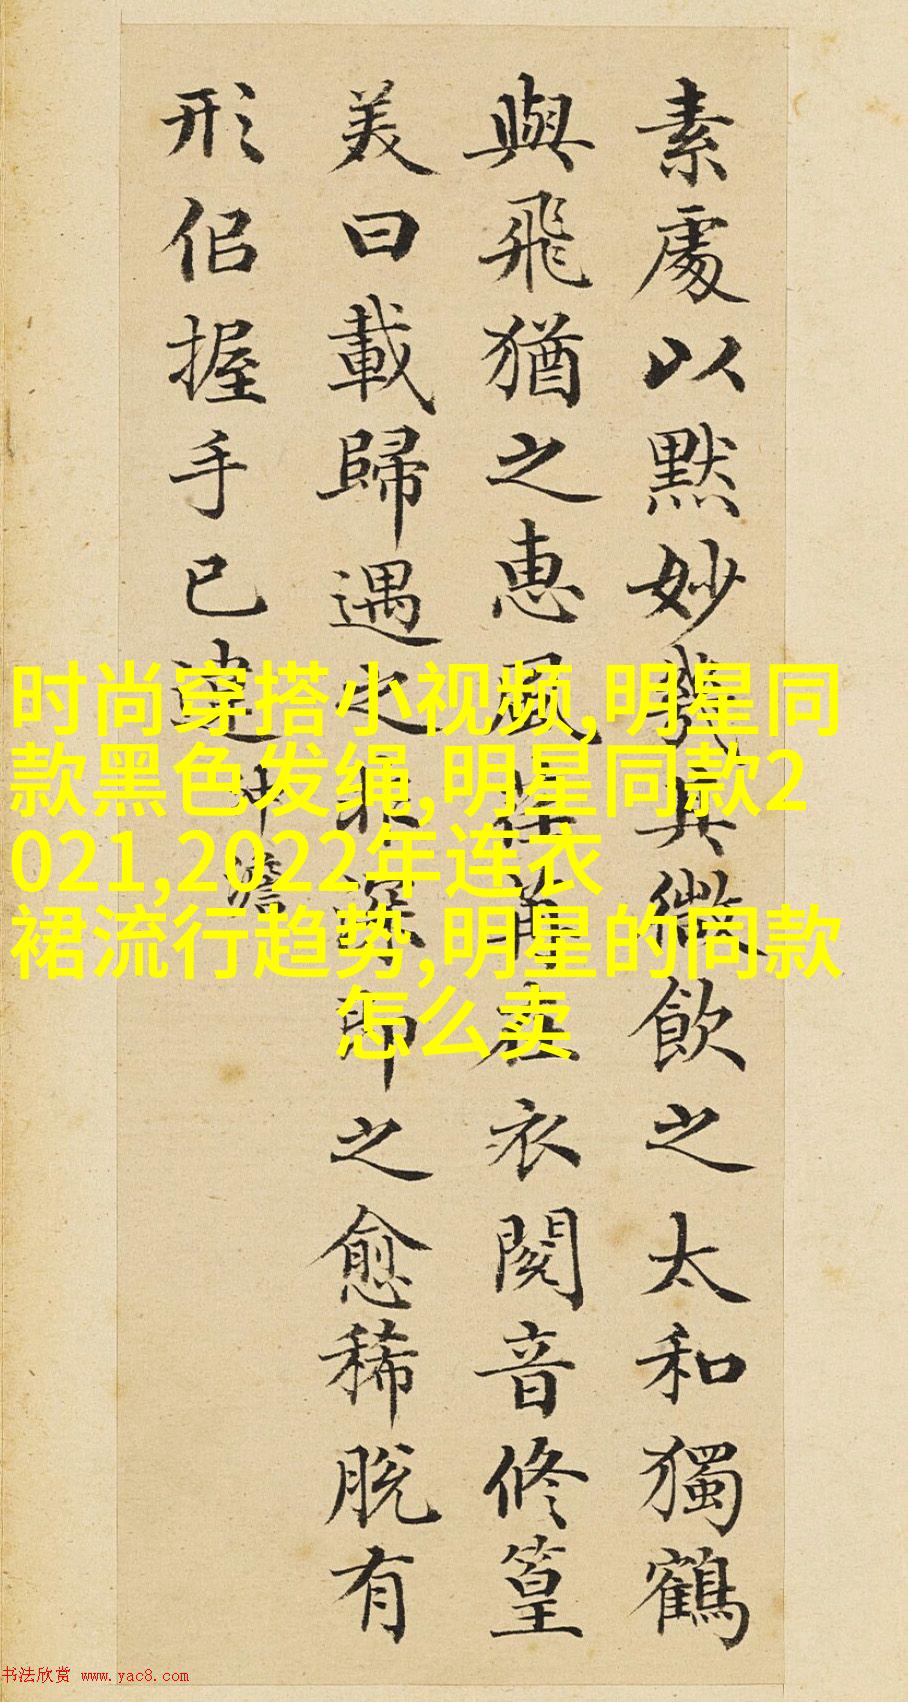 素處以默妙機其微飲之太和獨鶴
與飛猶之惠風荏苒在衣閱音修篁
美曰載歸遇之匪深即之愈稀脫有
形佀握手已違沖澹
时尚穿搭小视频,明星同
款黑色发绳,明星同款2
021,2022年连衣
裙流行趋势,明星的同款
怎么卖
书法欣赏 www.yac8.com